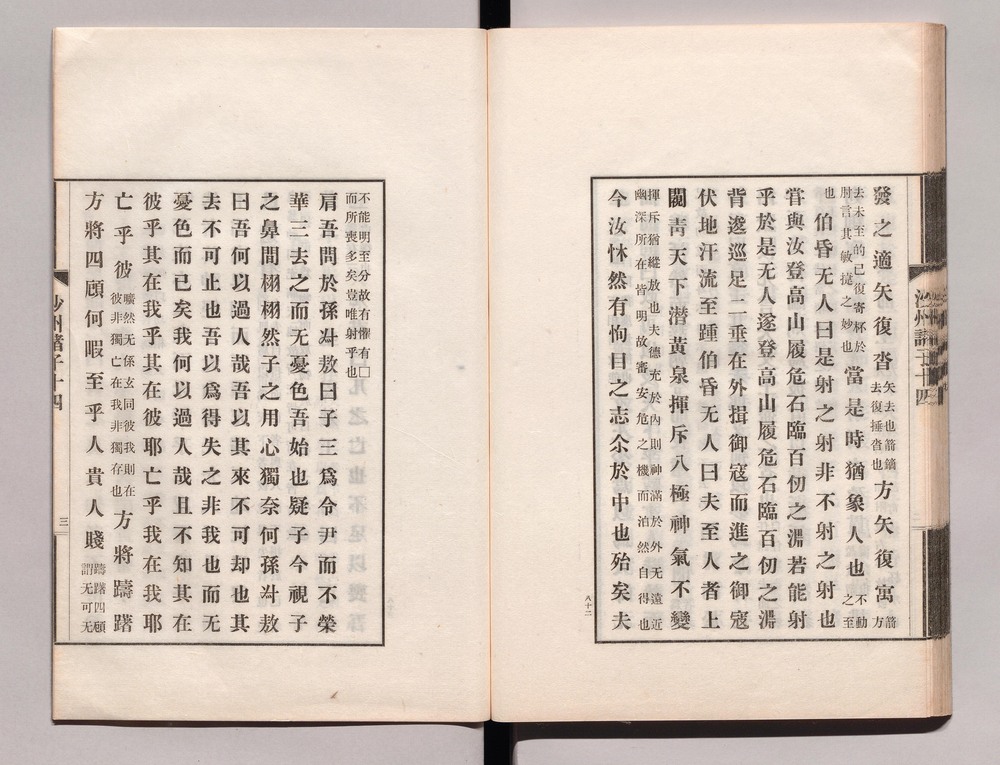 沙州諸子十四
發之適矢復沓矢去也箭鏑去復捶沓也方矢復寓箭方
去未至的已復寄杯於肘言其敏捷之妙也當是時猶象人也不動之至
也伯昏无人曰是射之射非不射之射也
嘗與汝登高山履危石臨百仞之淵若能射
乎於是无人遂登高山履危石臨百仞之淵
背逡巡足二垂在外揖御寇而進之御寇
伏地汗流至踵伯昏无人曰夫至人者上
闚青天下潜黃泉揮斥八極神氣不變
揮斥猶縱放也夫德充於內則神滿於外无遠近
幽深所在皆明故審安危之機而泊然自得也
今汝怵然有恂目之志尒於中也殆矣夫
八十二
不能明至分故有懼有□
而所喪多矣豈唯射乎也
肩吾問於孫𠦑敖曰子三爲令尹而不榮
華三去之而无憂色吾始也疑子今視子
之鼻間栩栩然子之用心獨奈何孫𠦑敖
曰吾何以過人哉吾以其來不可却也其
去不可止也吾以爲得失之非我也而无
憂色而已矣我何以過人哉且不知其在
彼乎其在我乎其在彼耶亡乎我在我耶
亡乎彼曠然无係玄同彼我則在彼非獨亡在我非獨存也方將躊躇
方將四顧何暇至乎人貴人賤躊躇四顧謂无可无
沙州諸子十四
三